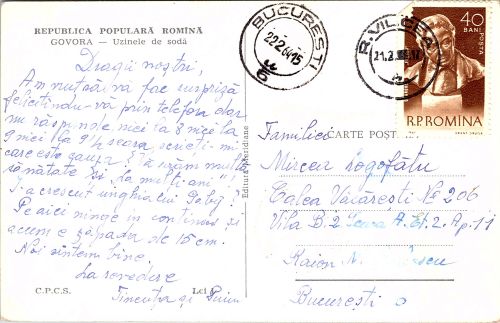 REPUBLICA POPULARĂ ROMÎNĂ
GOVORA — Uzinele de sodă
Dragii noștri,
Am vrut să vă fac surpriză
felicitîndu-vă prin telefon dar
nu răspunde nici la 8 nici la
9 nici la 9½ seara scrieti-mi
care este cauza? Vă urăm multă
sănătate și „La mulți ani".
I-a crescut unghia lui
Pe aici ninge în continuu și
acum e zăpadă de 15 cm.
Noi sîntem bine.
La revedere
Tincuța și Puiu
C.P.C.S.
Lei
Editura Meridiane
BUCUREȘTI
22.2.64.15
R. VILCEA
21.2
40
BANI
POSTA
R.P.ROMINA
CARTE POȘT
Familiei
Mircea Logofătu
Calea Văcărești No 206
Vila B.2 Scara A. Et. 2. Ap. 11
Raion
București